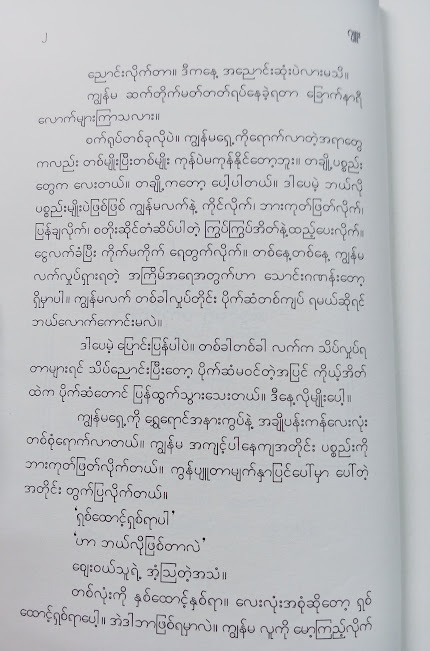 ၂
ညောင်းလိုက်တာ။ ဒီကနေ့ အညောင်းဆုံးပဲလားမသိ။
ကျွန်မ ဆက်တိုက်မတ်တတ်ရပ်နေခဲ့ရတာ ခြောက်နာရီ
လောက်များကြာသလား။
စက်ရုပ်တစ်ခုလိုပဲ။ ကျွန်မရှေ့ကိုရောက်လာတဲ့အရာတွေ
ကလည်း တစ်မျိုးပြီးတစ်မျိုး ကုန်ပဲမကုန်နိုင်တော့ဘူး။ တချို့ပစ္စည်း
တွေက လေးတယ်။ တချို့ကတော့ ပေါ့ပါတယ်။ ဒါပေမဲ့ ဘယ်လို
ပစ္စည်းမျိုးပဲဖြစ်ဖြစ် ကျွန်မလက်နဲ့ ကိုင်လိုက်၊ ဘားကုတ်ဖြတ်လိုက်၊
ပြန်ချလိုက်၊ စတိုးဆိုင်တံဆိပ်ပါတဲ့ ကြွပ်ကြွပ်အိတ်နဲ့ထည့်ပေးလိုက်။
ငွေလက်ခံပြီး ကိုက်မကိုက် ရေတွက်လိုက်။ တစ်နေ့တစ်နေ့ ကျွန်မ
လက်လှုပ်ရှားရတဲ့ အကြိမ်အရေအတွက်ဟာ သောင်းဂဏန်းတော့
ရှိမှာပါ။ ကျွန်မလက် တစ်ခါလှုပ်တိုင်း ပိုက်ဆံတစ်ကျပ် ရမယ်ဆိုရင်
ဘယ်လောက်ကောင်းမလဲ။
ဒါပေမဲ့ ပြောင်းပြန်ပါပဲ။ တစ်ခါတစ်ခါ လက်က သိပ်လှုပ်ရ
တာများရင် သိပ်ညောင်းပြီးတော့ ပိုက်ဆံမဝင်တဲ့အပြင် ကိုယ့်အိတ်
ထဲက ပိုက်ဆံတောင် ပြန်ထွက်သွားသေးတယ်။ ဒီနေ့လိုမျိုးပေါ့။
ကျွန်မရှေ့ကို ရွှေရောင်အနားကွပ်နဲ့ အချိုပန်းကန်လေးလုံး
တစ်စုံရောက်လာတယ်။ ကျွန်မ အကျင့်ပါနေကျအတိုင်း ပစ္စည်းကို
ဘားကုတ်ဖြတ်လိုက်တယ်။ ကွန်ပျူတာမျက်နှာပြင်ပေါ်မှာ ပေါ်တဲ့
အတိုင်း တွက်ပြလိုက်တယ်။
‘ရှစ်ထောင့်ရှစ်ရာပါ’
‘ဟာ ဘယ်လိုဖြစ်တာလဲ’
ဈေးဝယ်သူရဲ့ အံ့ဩတဲ့အသံ။
တစ်လုံးကို နှစ်ထောင့်နှစ်ရာ။ လေးလုံးအစုံဆိုတော့ ရှစ်
ထောင့်ရှစ်ရာပေါ့။ အဲဒါဘာဖြစ်ရမှာလဲ။ ကျွန်မ လူကို မော့ကြည့်လိုက်